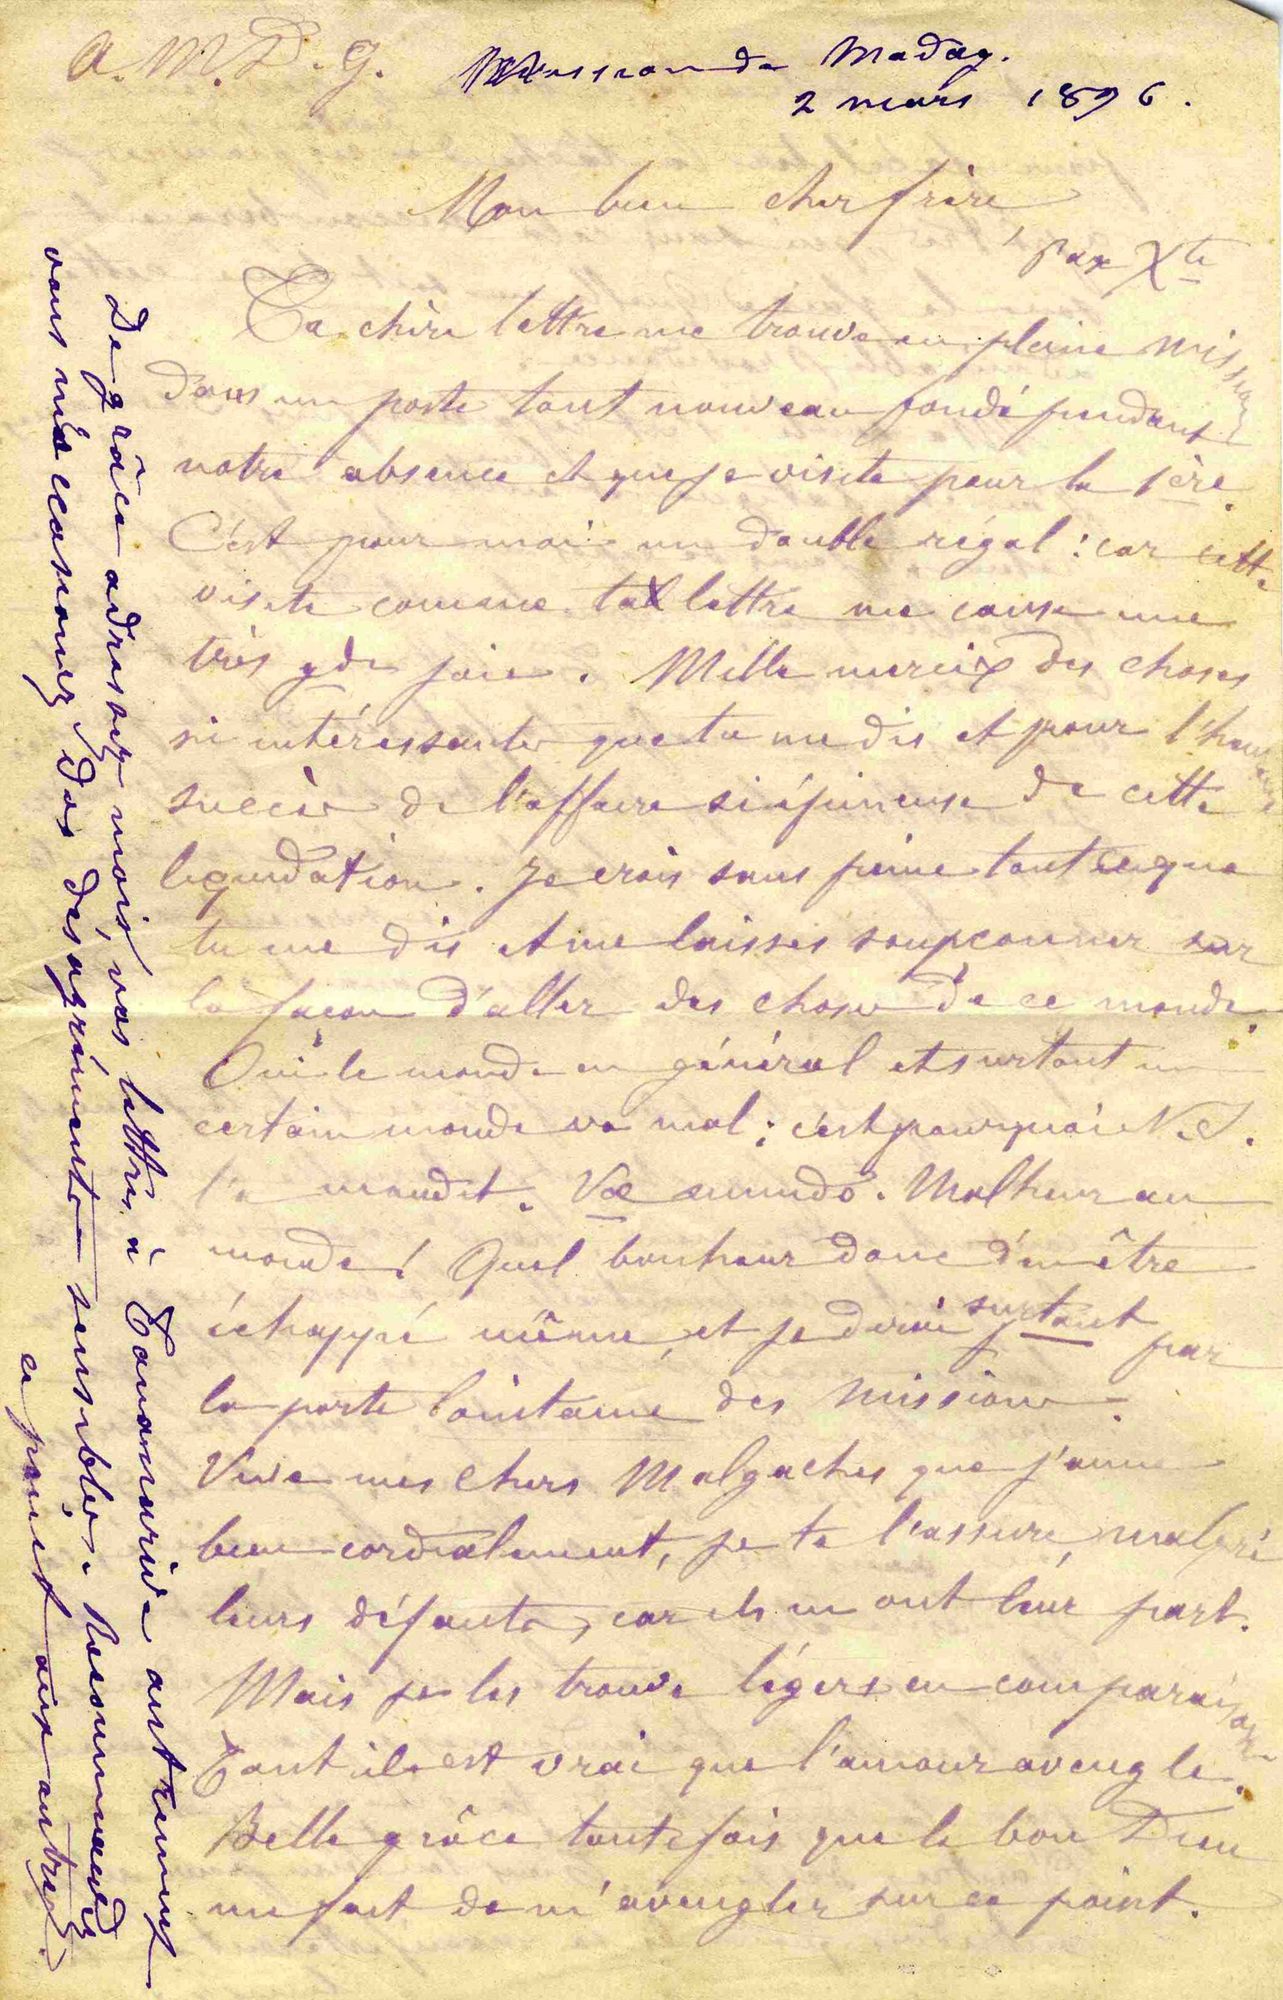 A. M. D. G. Mission de Madag.
2 mars 1896.
Mon bien cher frère
Pax Xti
Ta chère lettre me trouve en pleine mission
dans un poste tout nouveau fondé pendant
notre absence et que je visite pour la 1ère.
C'est pour moi un double régal : car cette
visite comme ta lettre me cause une
très gde joie. Mille merci des choses
si intéressantes que tu me dis et pour l'heureux
succès de l'affaire si épineuse de cette
liquidation. Je crois sans peine tout ce que
tu me dis et me laisses soupçonner sur
la façon d'aller des choses de ce monde.
Oui le monde en général et surtout un
certain monde va mal ; c'est pourquoi N.S.
l'a maudit. Vae mundo. Malheur au
monde ! Quel bonheur donc d'en être
échappé même, et je dirai surtout par
la porte lointaine des missions.
Vive mes chers Malgaches que j'aime
bien cordialement, je te l'assure, malgré
leurs défauts, car ils en ont leur part.
Mais je les trouve légers en comparaison
Tant il est vrai que l'amour aveugle.
Belle grâce toutefois que le bon Dieu
me fait de m'aveugler sur ce point.
De grâce adressez moi, vos lettres à Tananarive autrement
vous me causez des désagréments sensibles. Recommandez
ce point aux autres.